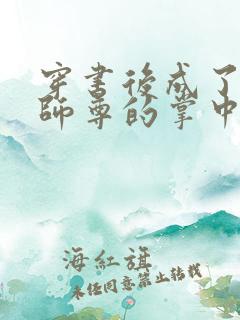 穿書後成了
師尊的掌中
海紅旗
未经同意禁止转载